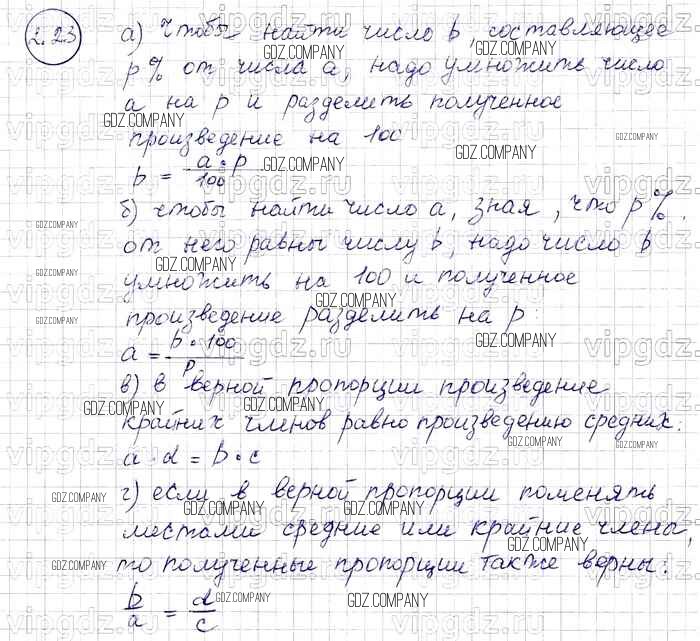 2.23
а) Чтобы найти число b, составляющее
p% от числа a, надо умножить число
a на p и разделить полученное
произведение на 100
b = a·p / 100
б) чтобы найти число a, зная, что p%
от него равны числу b, надо число b
умножить на 100 и полученное
произведение разделить на p:
a = b·100 / p
в) в верной пропорции произведение
крайних членов равно произведению средних:
a·d = b·c
г) если в верной пропорции поменять
местами средние или крайние члены,
то полученные пропорции также верны:
b/a = d/c
GDZ.COMPANY
vipgdz.ru